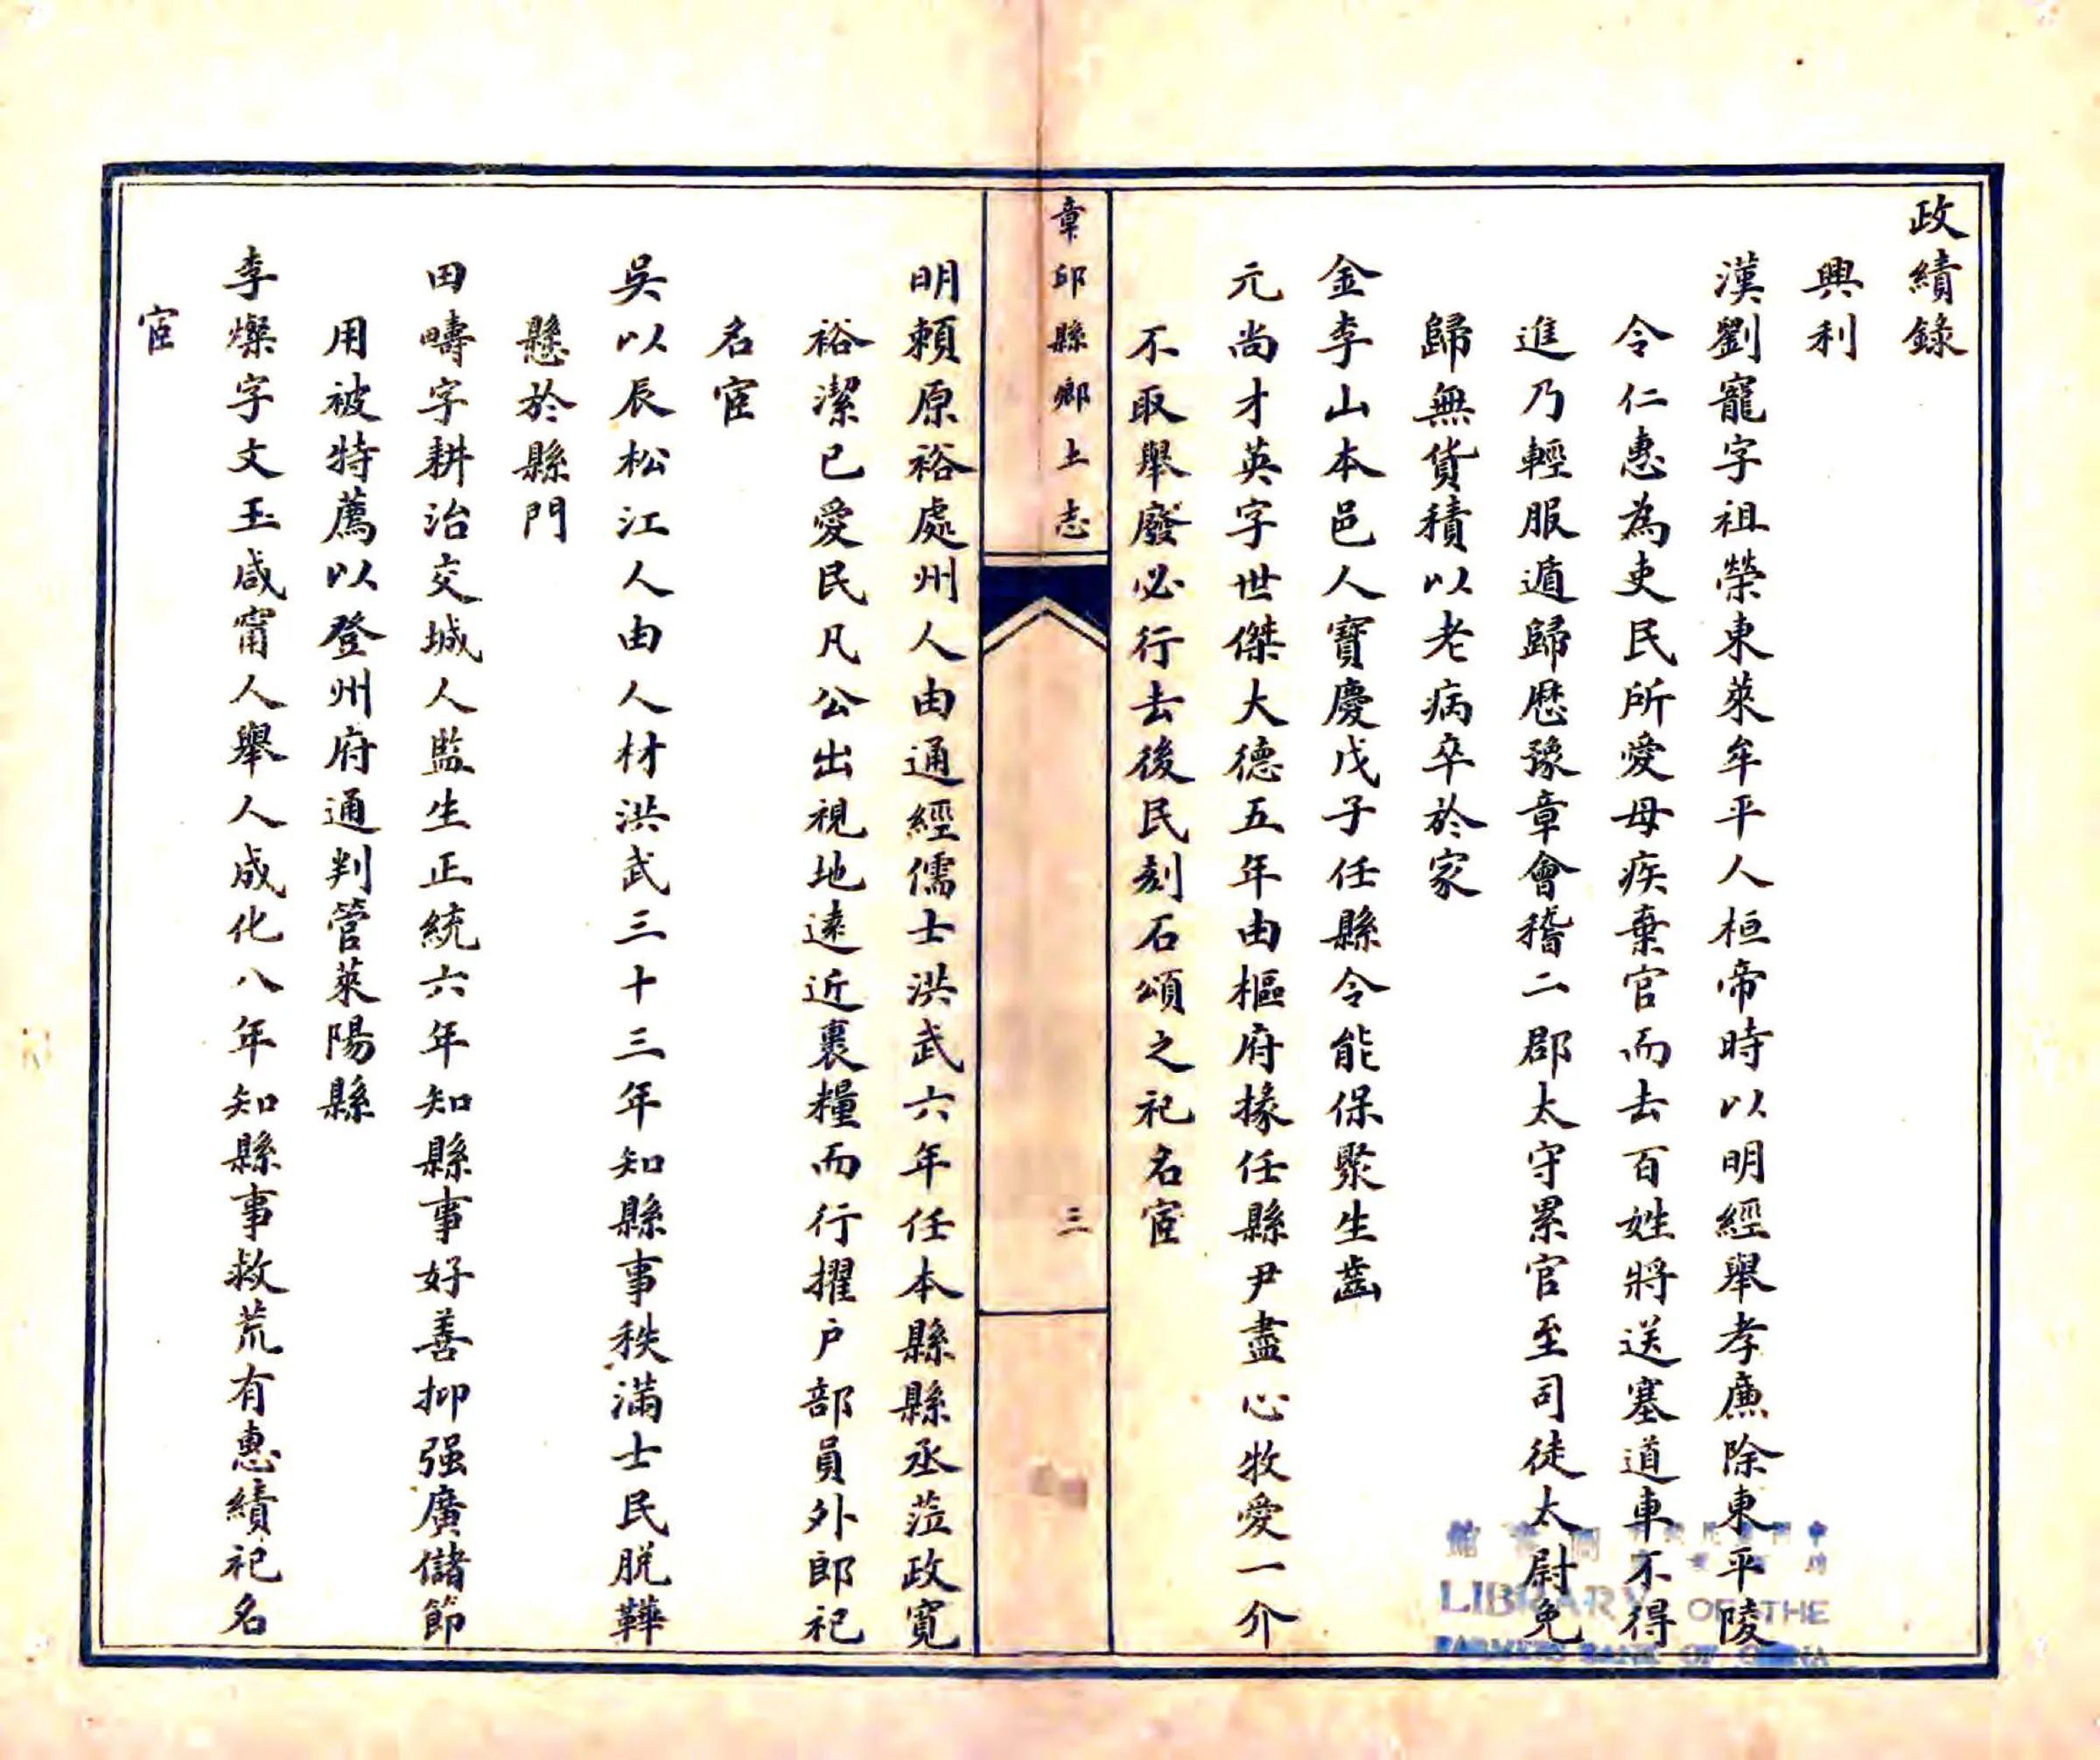 政績錄
興利
漢劉寵字祖榮東萊牟平人桓帝時以明經舉孝廉除東平陵
令仁惠為吏民所愛母疾棄官而去百姓將送塞道車不得
進乃輕服遁歸歷豫章會稽二郡太守累官至司徒太尉免
歸無貨積以老病卒於家
金李山本邑人寶慶戊子任縣令能保聚生齒
元尚才英字世傑大德五年由樞府掾任縣尹盡心牧愛一介
不取舉廢必行去後民刻石頌之祀名宦
章邱縣鄉土志
三
明賴原裕處州人由通經儒士洪武六年任本縣縣丞蒞政寬
裕潔已愛民凡公出視地遠近裹糧而行擢户部員外郎祀
名宦
吳以辰松江人由人材洪武三十三年知縣事秩滿士民脱鞾
懸於縣門
田疇字耕治交城人監生正統六年知縣事好善抑强廣儲節
用被特薦以登州府通判管萊陽縣
李燦字文玉咸甯人舉人成化八年知縣事救荒有惠績祀名
宦
LIBRARY OF THE
FARMERS BANK OF CHINA